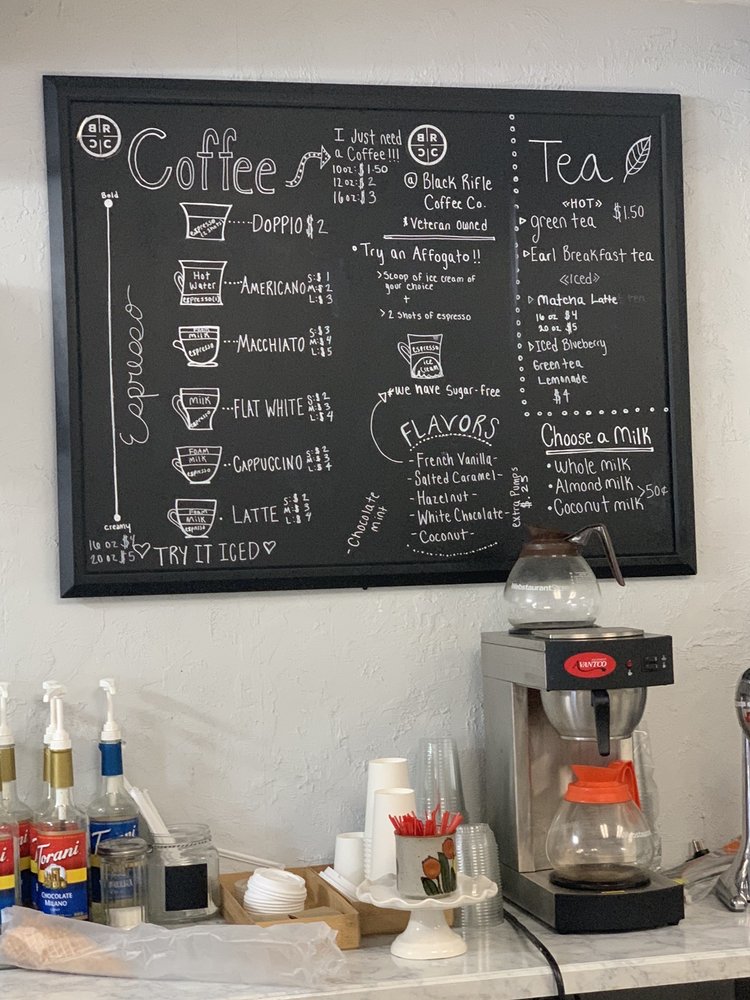 BRCC
Coffee
I Just need
a Coffee!!!
10oz: $1.50
12oz: $2
16oz: $3
Bold
Espresso
creamy
espresso
(2 shots)
DOPPIO $2
Hot
Water
espresso(s)
AMERICANO
S: $1
M: $2
L: $3
FOAM
MILK
espresso
MACCHIATO
S: $3
M: $4
L: $5
MILK
espresso
FLAT WHITE
S: $2
M: $3
L: $4
FOAM
MILK
espresso
CAPPUCCINO
S: $2
M: $3
L: $4
FOAM
MILK
espresso
LATTE
S: $2
M: $3
L: $4
16 oz $4
20 oz $5
♡ TRY IT ICED ♡
BRCC
@ Black Rifle
Coffee Co.
Veteran owned
• Try an Affogato!!
> Scoop of ice cream of
your choice
+
> 2 shots of espresso
espresso
ice
cream
#we have Sugar-free
FLAVORS
- French Vanilla -
- Salted Caramel -
- Hazelnut -
- White Chocolate -
- Coconut -
- Chocolate
mint
extra Pumps
$.25
Tea
«HOT»
green tea $1.50
Earl Breakfast tea
«Iced»
Matcha Latte tea
16 oz $4
20 oz $5
Iced Blueberry
Green tea
Lemonade
$4
Choose a Milk
• Whole milk
• Almond milk
• Coconut milk >50¢
Webstaurant
AVANTCO
Torani
CHOCOLATE
MILANO